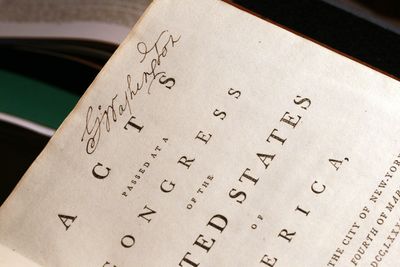 G. Washington
ACTS
PASSED AT A
CONGRESS
OF THE
UNITED STATES
OF
ERICA,
THE CITY OF NEW-Y
FOURTH OF MAR
DCC,LXXX